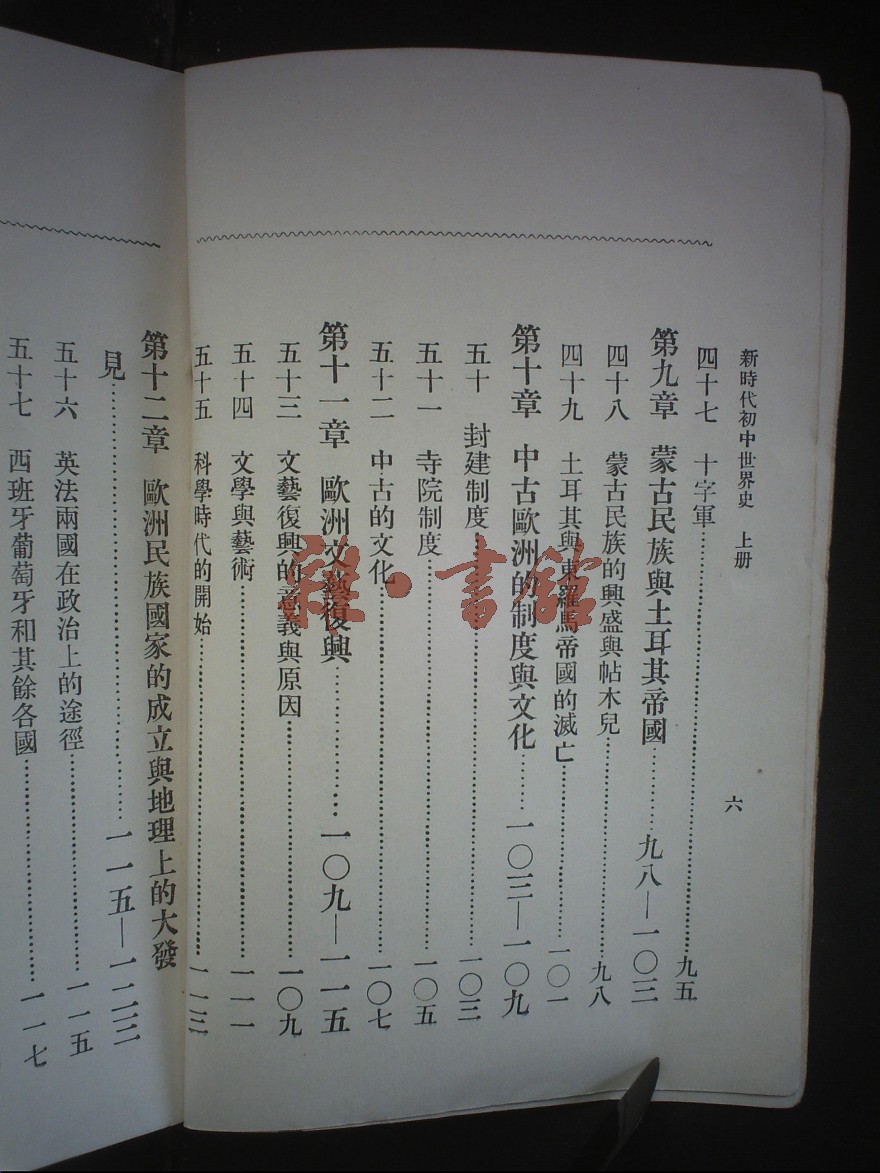 新時代初中世界史 上册
六
四十七 十字軍……九五
第九章 蒙古民族與土耳其帝國……九八—一〇三
四十八 蒙古民族的興盛與帖木兒……九八
四十九 土耳其與東羅馬帝國的滅亡……一〇一
第十章 中古歐洲的制度與文化……一〇三—一〇九
五十 封建制度……一〇三
五十一 寺院制度……一〇五
五十二 中古的文化……一〇七
第十一章 歐洲文藝復興……一〇九—一一五
五十三 文藝復興的意義與原因……一〇九
五十四 文學與藝術……一一一
五十五 科學時代的開始……一一三
第十二章 歐洲民族國家的成立與地理上的大發
見……一一五—一二三
五十六 英法兩國在政治上的途徑……一一五
五十七 西班牙葡萄牙和其餘各國……一一七
祥·書館